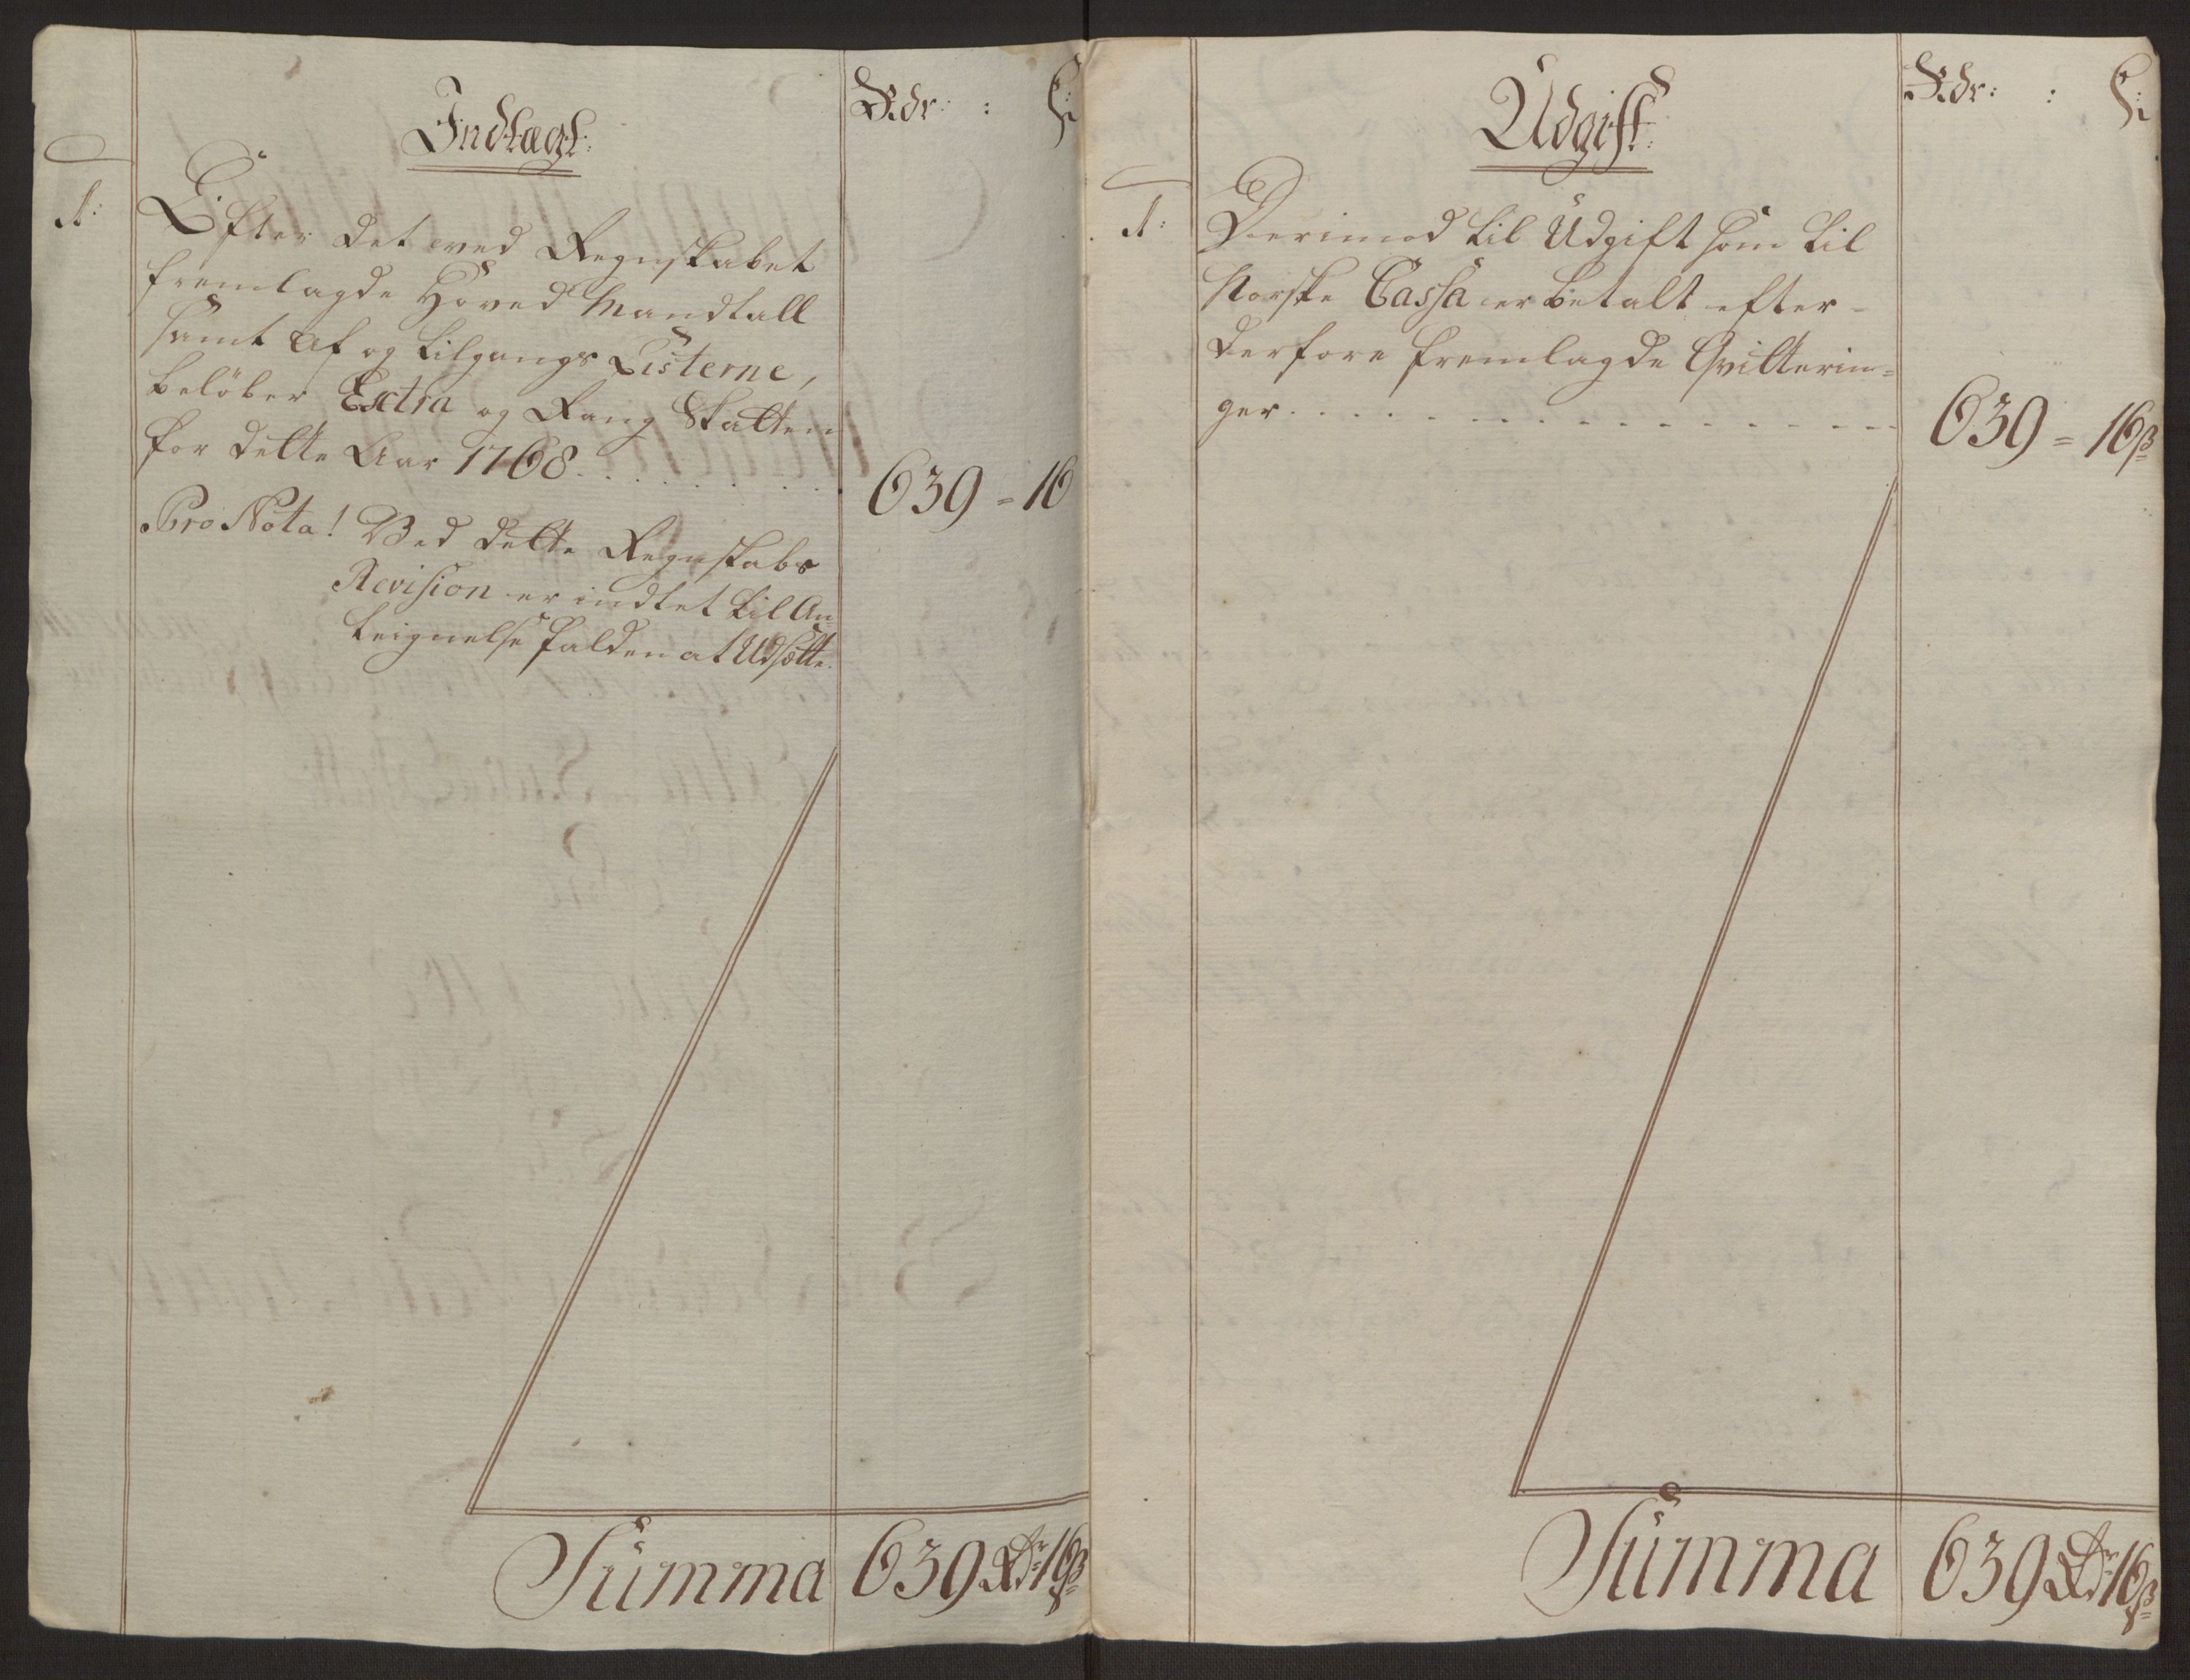 Indtægt:
Rdr: : ß:
1:
Efter det ved Regnskabet
fremlagde Hoved Mandtall
samt Af og Tilgangs Listerne,
beløber Extra og Rang Skatten
for dette Aar 1768 . . . . . . . . 639 = 16
Pro Nota! Ved dette Regnskabs
Revision er indtet til An
teignelse falden at Udsætte.
Summa 639 Rdr 16 ß
Udgift:
Rdr: : ß:
1:
Derimod til Udgift som til
Norske Cassa er betalt efter
derfore fremlagde Qvitterin=
ger . . . . . . . . . . . . . . 639 = 16 ß
Summa 639 Rdr 16 ß